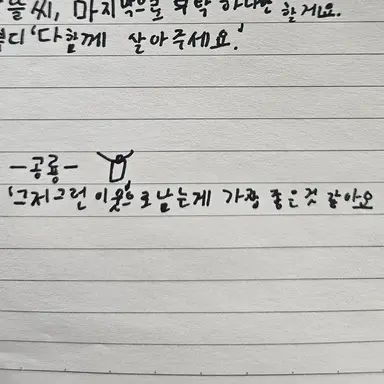 뜰씨, 마지막으로 부탁 하나만 할게요.
디 '다함께 살아주세요.'
-공룡-
'그저그런 이웃'으로 남는게 가장 좋은것 같아요